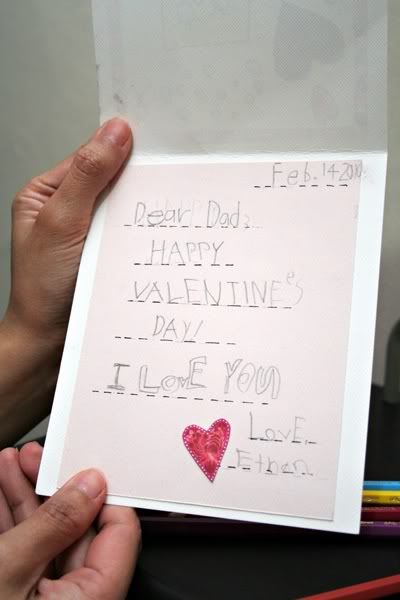 Feb. 14 2010
Dear Dad,
HAPPY
VALENTINE'S
DAY!
I LOVE YOU
LOVE,
Ethan.